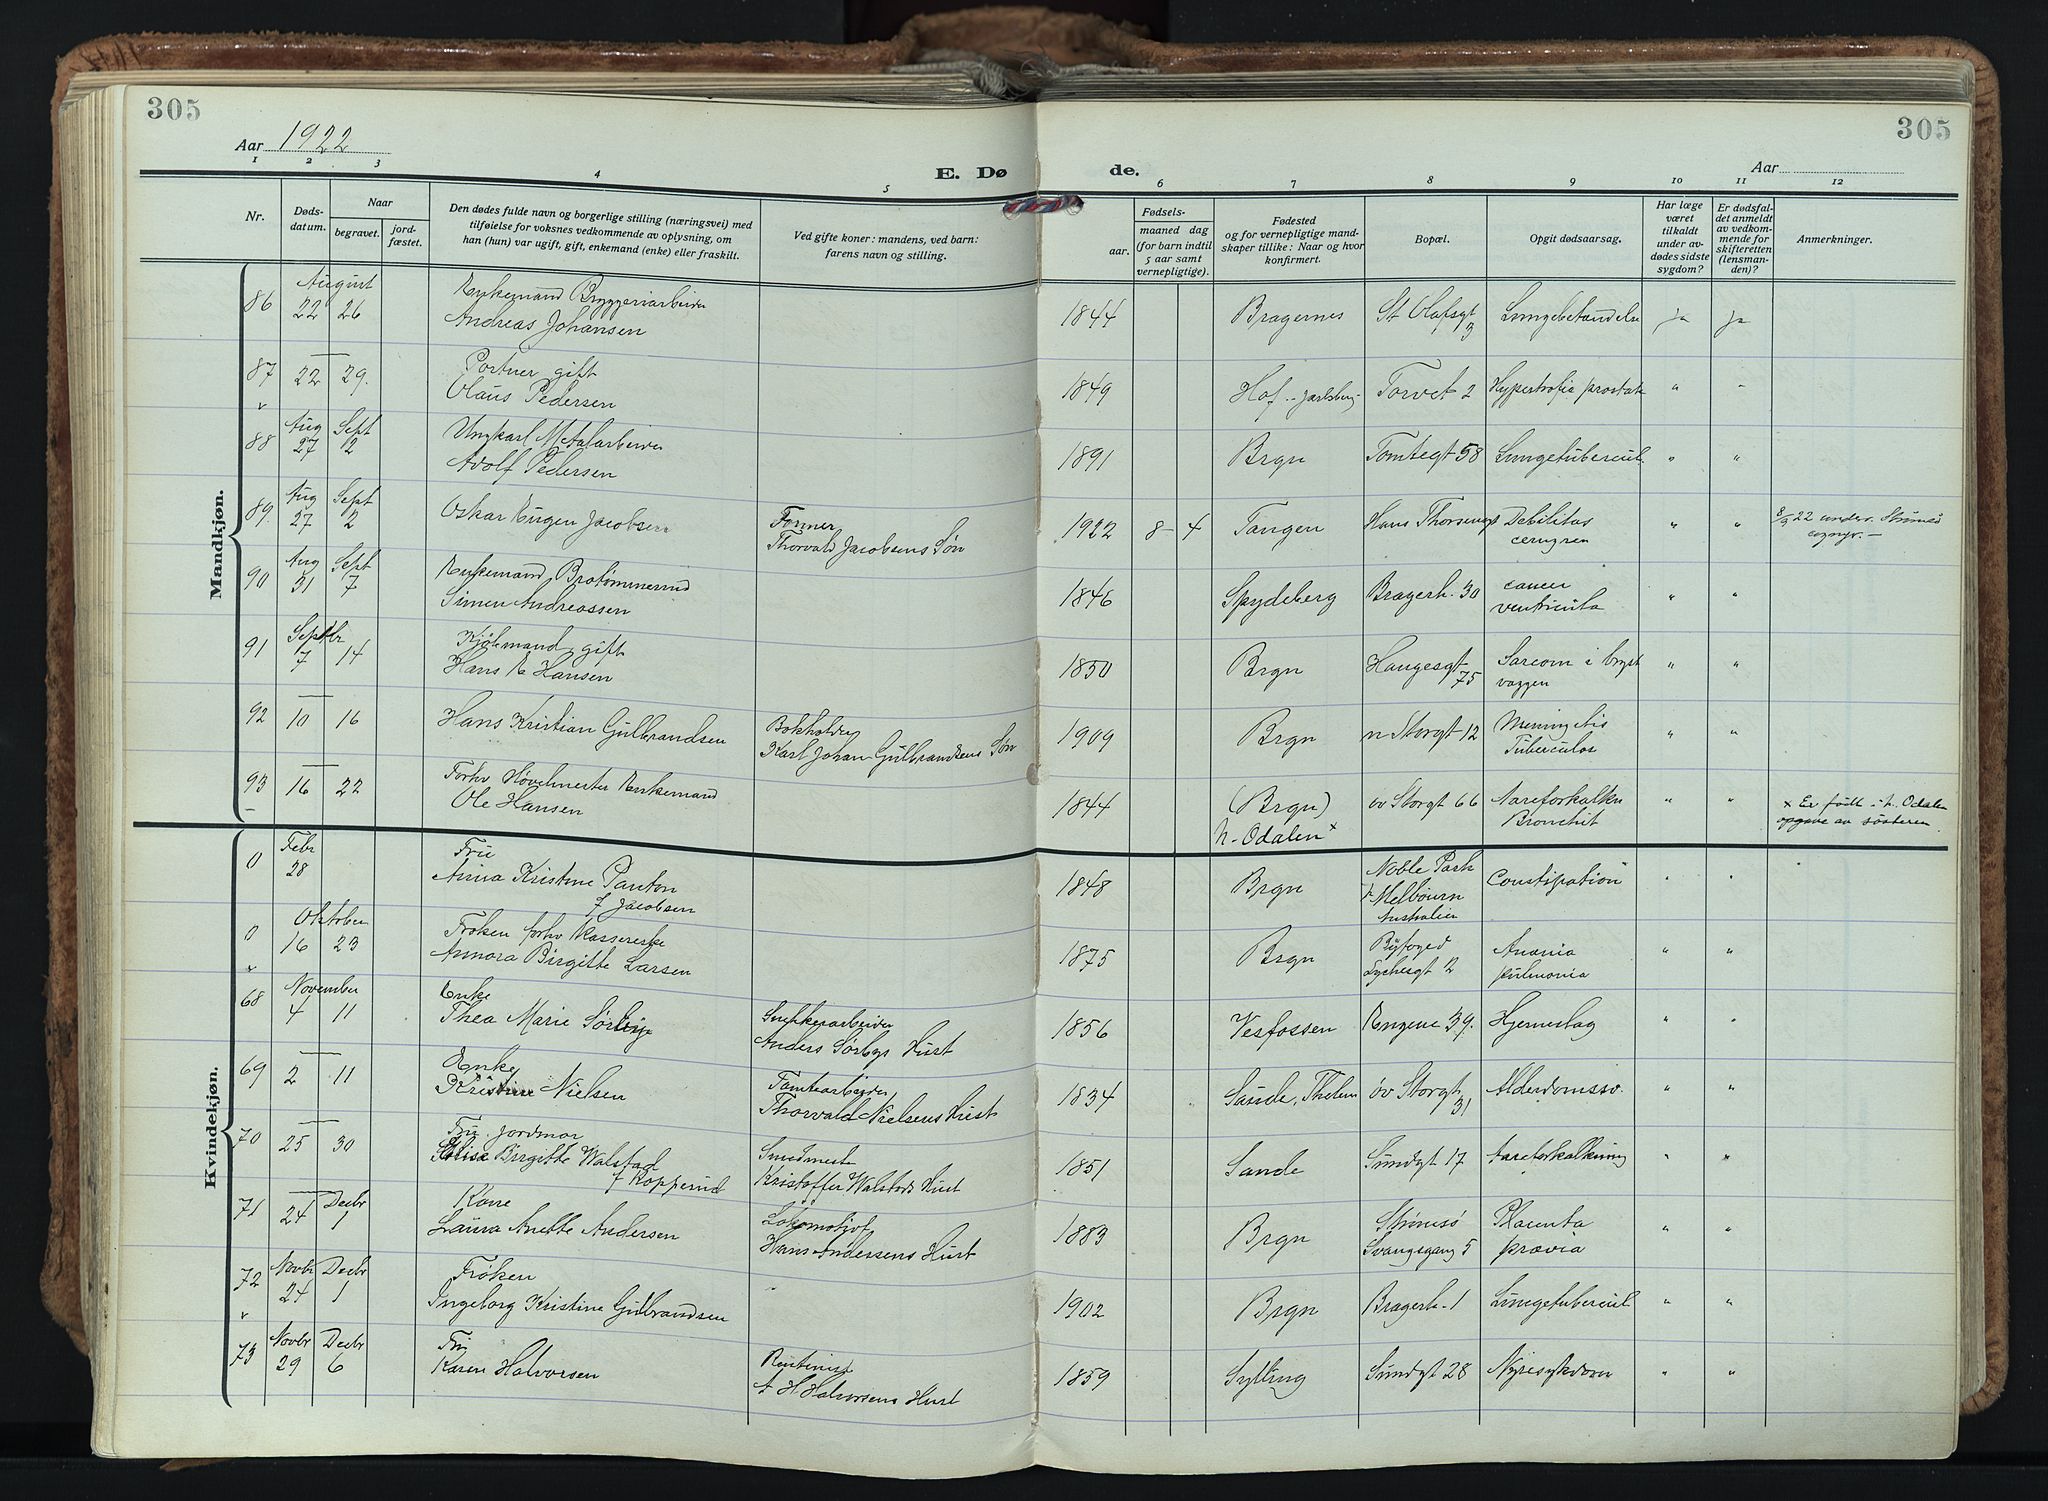 305
305
Aar 1922
Aar
E. Dø
de.
1 2 3 4 5 6 7 8 9 10 11 12
Nr.
Døds-
datum.
Naar
begravet.
jord-
fæstet.
Den dødes fulde navn og borgerlige stilling (næringsvei) med
tilføielse for voksnes vedkommende av oplysning, om
han (hun) var ugift, gift, enkemand (enke) eller fraskilt.
Ved gifte koner: mandens, ved barn:
farens navn og stilling.
Fødsels-
aar.
maaned dag
(for barn indtil
5 aar samt
vernepligtige).
Fødested
og for vernepligtige mand-
skaper tillike: Naar og hvor
konfirmert.
Bopæl.
Opgit dødsaarsag.
Har læge
været
tilkaldt
under av-
dødes sidste
sygdom?
Er dødsfal-
det anmeldt
av vedkom-
mende for
skifteretten
(lensman-
den)?
Anmerkninger.
Mandkjøn.
August
86 22 26 Enkemand Bryggeriarbeider
Andreas Johansen 1844 Bragernes St Olafsgt 3 Lungebetændelse ja ja
87 22 29. Portner gift
Olaus Pedersen 1849 Hof - Jarlsberg - Torvet 2 Hypertrofia prostat " "
Aug Sept
88 27 2 Ungkarl Metalarbeider
Adolf Pedersen 1891 Brgn Tomtegt 58 Lungetubercul. " "
Aug Sept
89. 27 2 Oskar Eugen Jacobsen Former
Thorvald Jacobsens Søn 1922 8 - 4 Tangen Hans Thorsensgt Debilitas " " 8/9 22 under. Strømsø
Aug Sept
90 31 7 Enkemand
Simen Andreassen 1846 Spydeberg Bragerh. 30 cancer
ventricula " "
Septbr
91 7 14 Kjøbmand, gift
Hans E Hansen 1850 Brgn Haugesgt 75 Sarcom i bryst
væggen " "
92 10 16 Hans Kristian Gulbrandsen Bokholder
Karl Johan Gulbrandsens Søn 1909 Brgn n Storgt 12 Meningitis
Tuberculos " "
93 16 22 Forhv Høvelmester Enkemand
Ole Hansen 1844 (Brgn)
N-Odalen x øv Storgt 66 Aareforkalkn
Bronchit " " x Er født i N. Odalen
opgave av søsteren
Kvindekjøn.
Febr
0 28 Fru
Anna Kristine Panton
f Jacobsen 1848 Brgn Noble Park
Melbourn
Australien Constipation " "
Oktober
0 16 23 Frøken forhv Kassererske
Annora Birgitte Larsen 1875 Brgn Byfoged
Lychesgt 12 Anæmia
pulmonia " "
November
68 4 11 Enke
Thea Marie Sørbye Snekkerarbeider
Anders Sørbys Hust 1856 Vesfossen Engene 39. Hjerneslag " "
69 2 11 Enke
Kristine Nielsen Tomtearbeider
Thorvald Nielsens Hust 1834 Sande, Thelem øv Storgt 31 Alderdomssv. " "
70 25 30 Fru. Jordmor
Elise Birgitte Walstad
f Kopperud Smedmester
Kristoffer Walstads Hust 1851 Sande Sundgt 17 Aareforkalkning " "
Decbr
71 24 1 Kone
Laura Anette Andersen Lokomotivf
Hans Andersens Hust 1883 Brgn Strømsø
Svangsgang 5 Placenta
prævia " "
Novbr Decbr
72 24 1 Frøken
Ingeborg Kristine Gulbrandsen " 1902 Brgn Bragerh. 1 Lungetubercul " "
Novbr Decbr
73 29 6 Fru
Karen Halvorsen Rentenist
A H Halvorsens Hust 1859 Sylling Sundgt 28 Nyresykdom " "